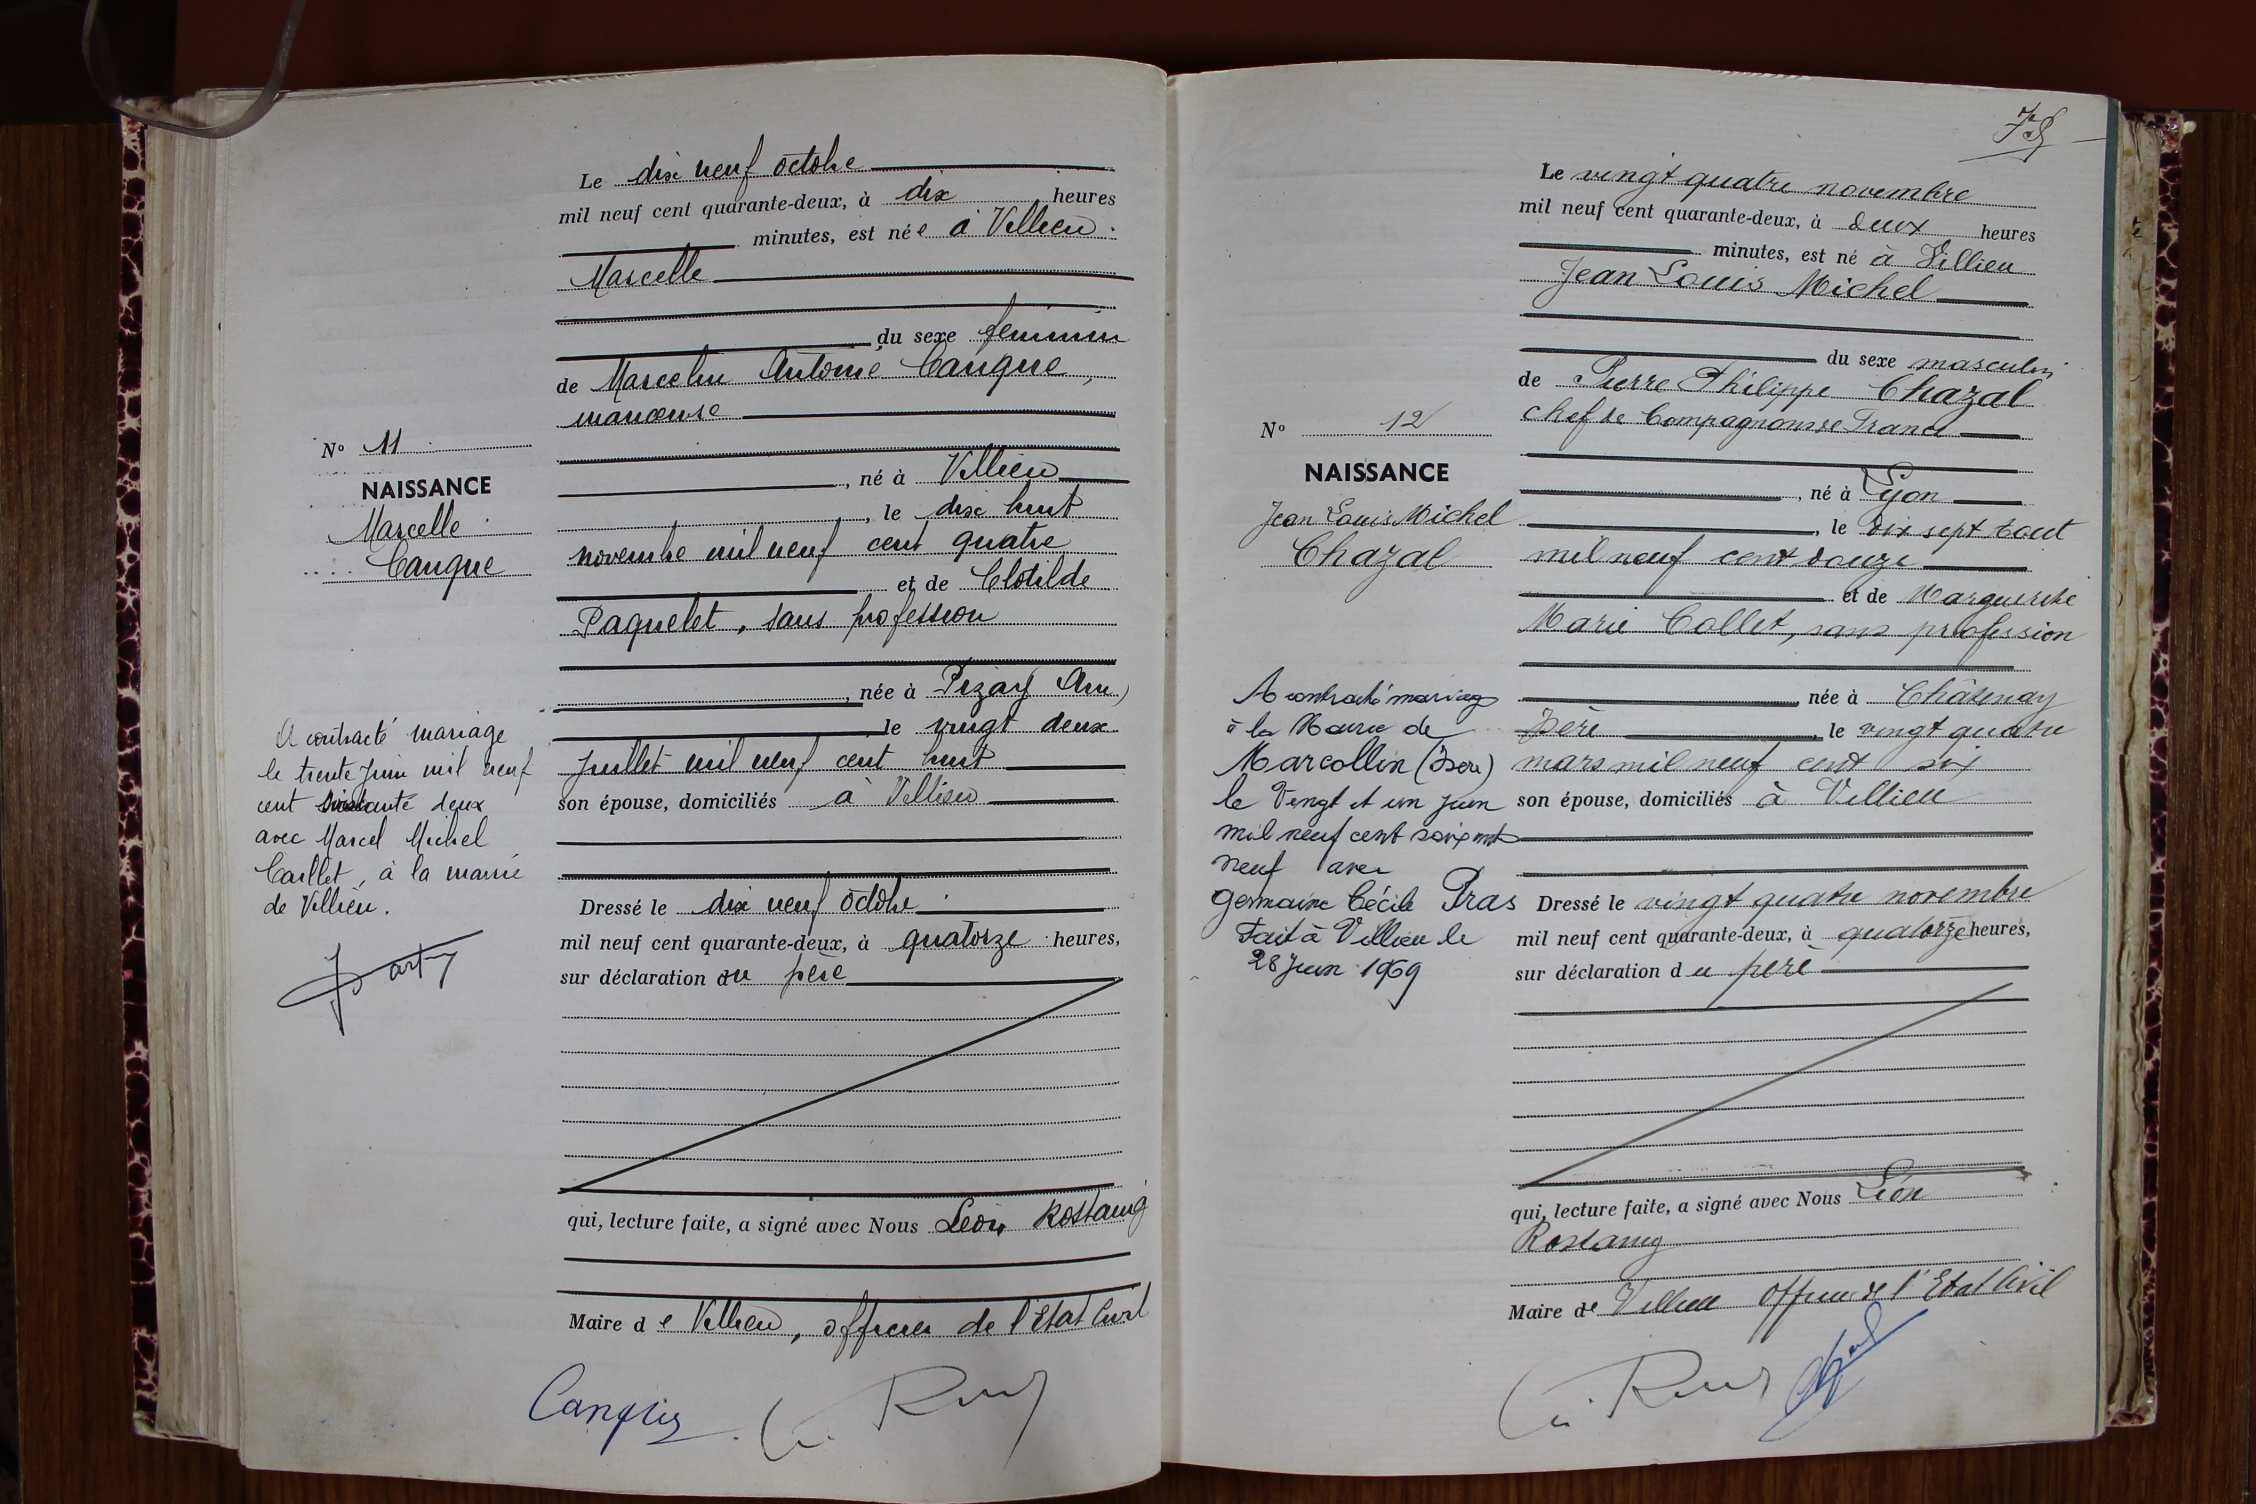 Le dix neuf octobre
mil neuf cent quarante-deux, à dix heures
minutes, est née à Villieu
Marcelle
du sexe féminin
de Marcelin Antoine Cangue,
manœuvre
N° 11
NAISSANCE
Marcelle
Cangue
, né à Villieu
, le dix huit
novembre mil neuf cent quatre
et de Clotilde
Paquelet, sans profession
, née à Pizay Ain)
le vingt deux
Juillet mil neuf cent huit
son épouse, domiciliés à Villieu
A contracté mariage
le trente Juin mil neuf
cent soixante deux
avec Marcel Michel
Caillet, à la mairie
de Villieu.
Dressé le dix neuf octobre
mil neuf cent quarante-deux, à quatorze heures,
sur déclaration du père
qui, lecture faite, a signé avec Nous Léon Rostaing
Maire de Villieu, officier de l'Etat Civil
75
Le vingt quatre novembre
mil neuf cent quarante-deux, à deux heures
minutes, est né à Villieu
Jean Louis Michel
du sexe masculin
de Pierre Philippe Chazal
chef de Compagnons de France
N° 12
NAISSANCE
Jean Louis Michel
Chazal
, né à Lyon
, le dix sept Aout
mil neuf cent douze
et de Marguerite
Marie Collet, sans profession
née à Châtenay
Isère, le vingt quatre
mars mil neuf cent six
son épouse, domiciliés à Villieu
A contracté mariage
à la Mairie de
Marcollin (Isère)
le Vingt et un juin
mil neuf cent soixante
neuf avec
Germaine Cécile Pras
Fait à Villieu le
28 Juin 1969
Dressé le vingt quatre novembre
mil neuf cent quarante-deux, à quatorze heures,
sur déclaration du père
qui, lecture faite, a signé avec Nous Léon
Rostaing
Maire de Villieu officier de l'Etat Civil